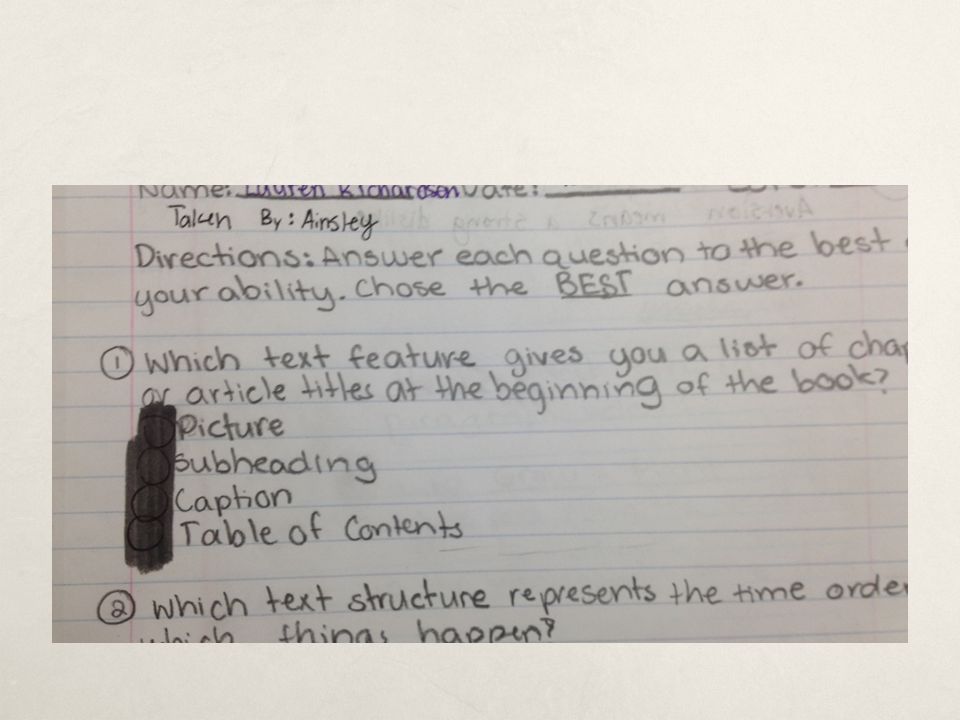 Name: Lauren Richardson Date:
Taken By: Ainsley
Directions: Answer each question to the best
your ability. Chose the BEST answer.
① Which text feature gives you a list of chap
or article titles at the beginning of the book?
Picture
Subheading
Caption
Table of Contents
② Which text structure represents the time order
which things happen?